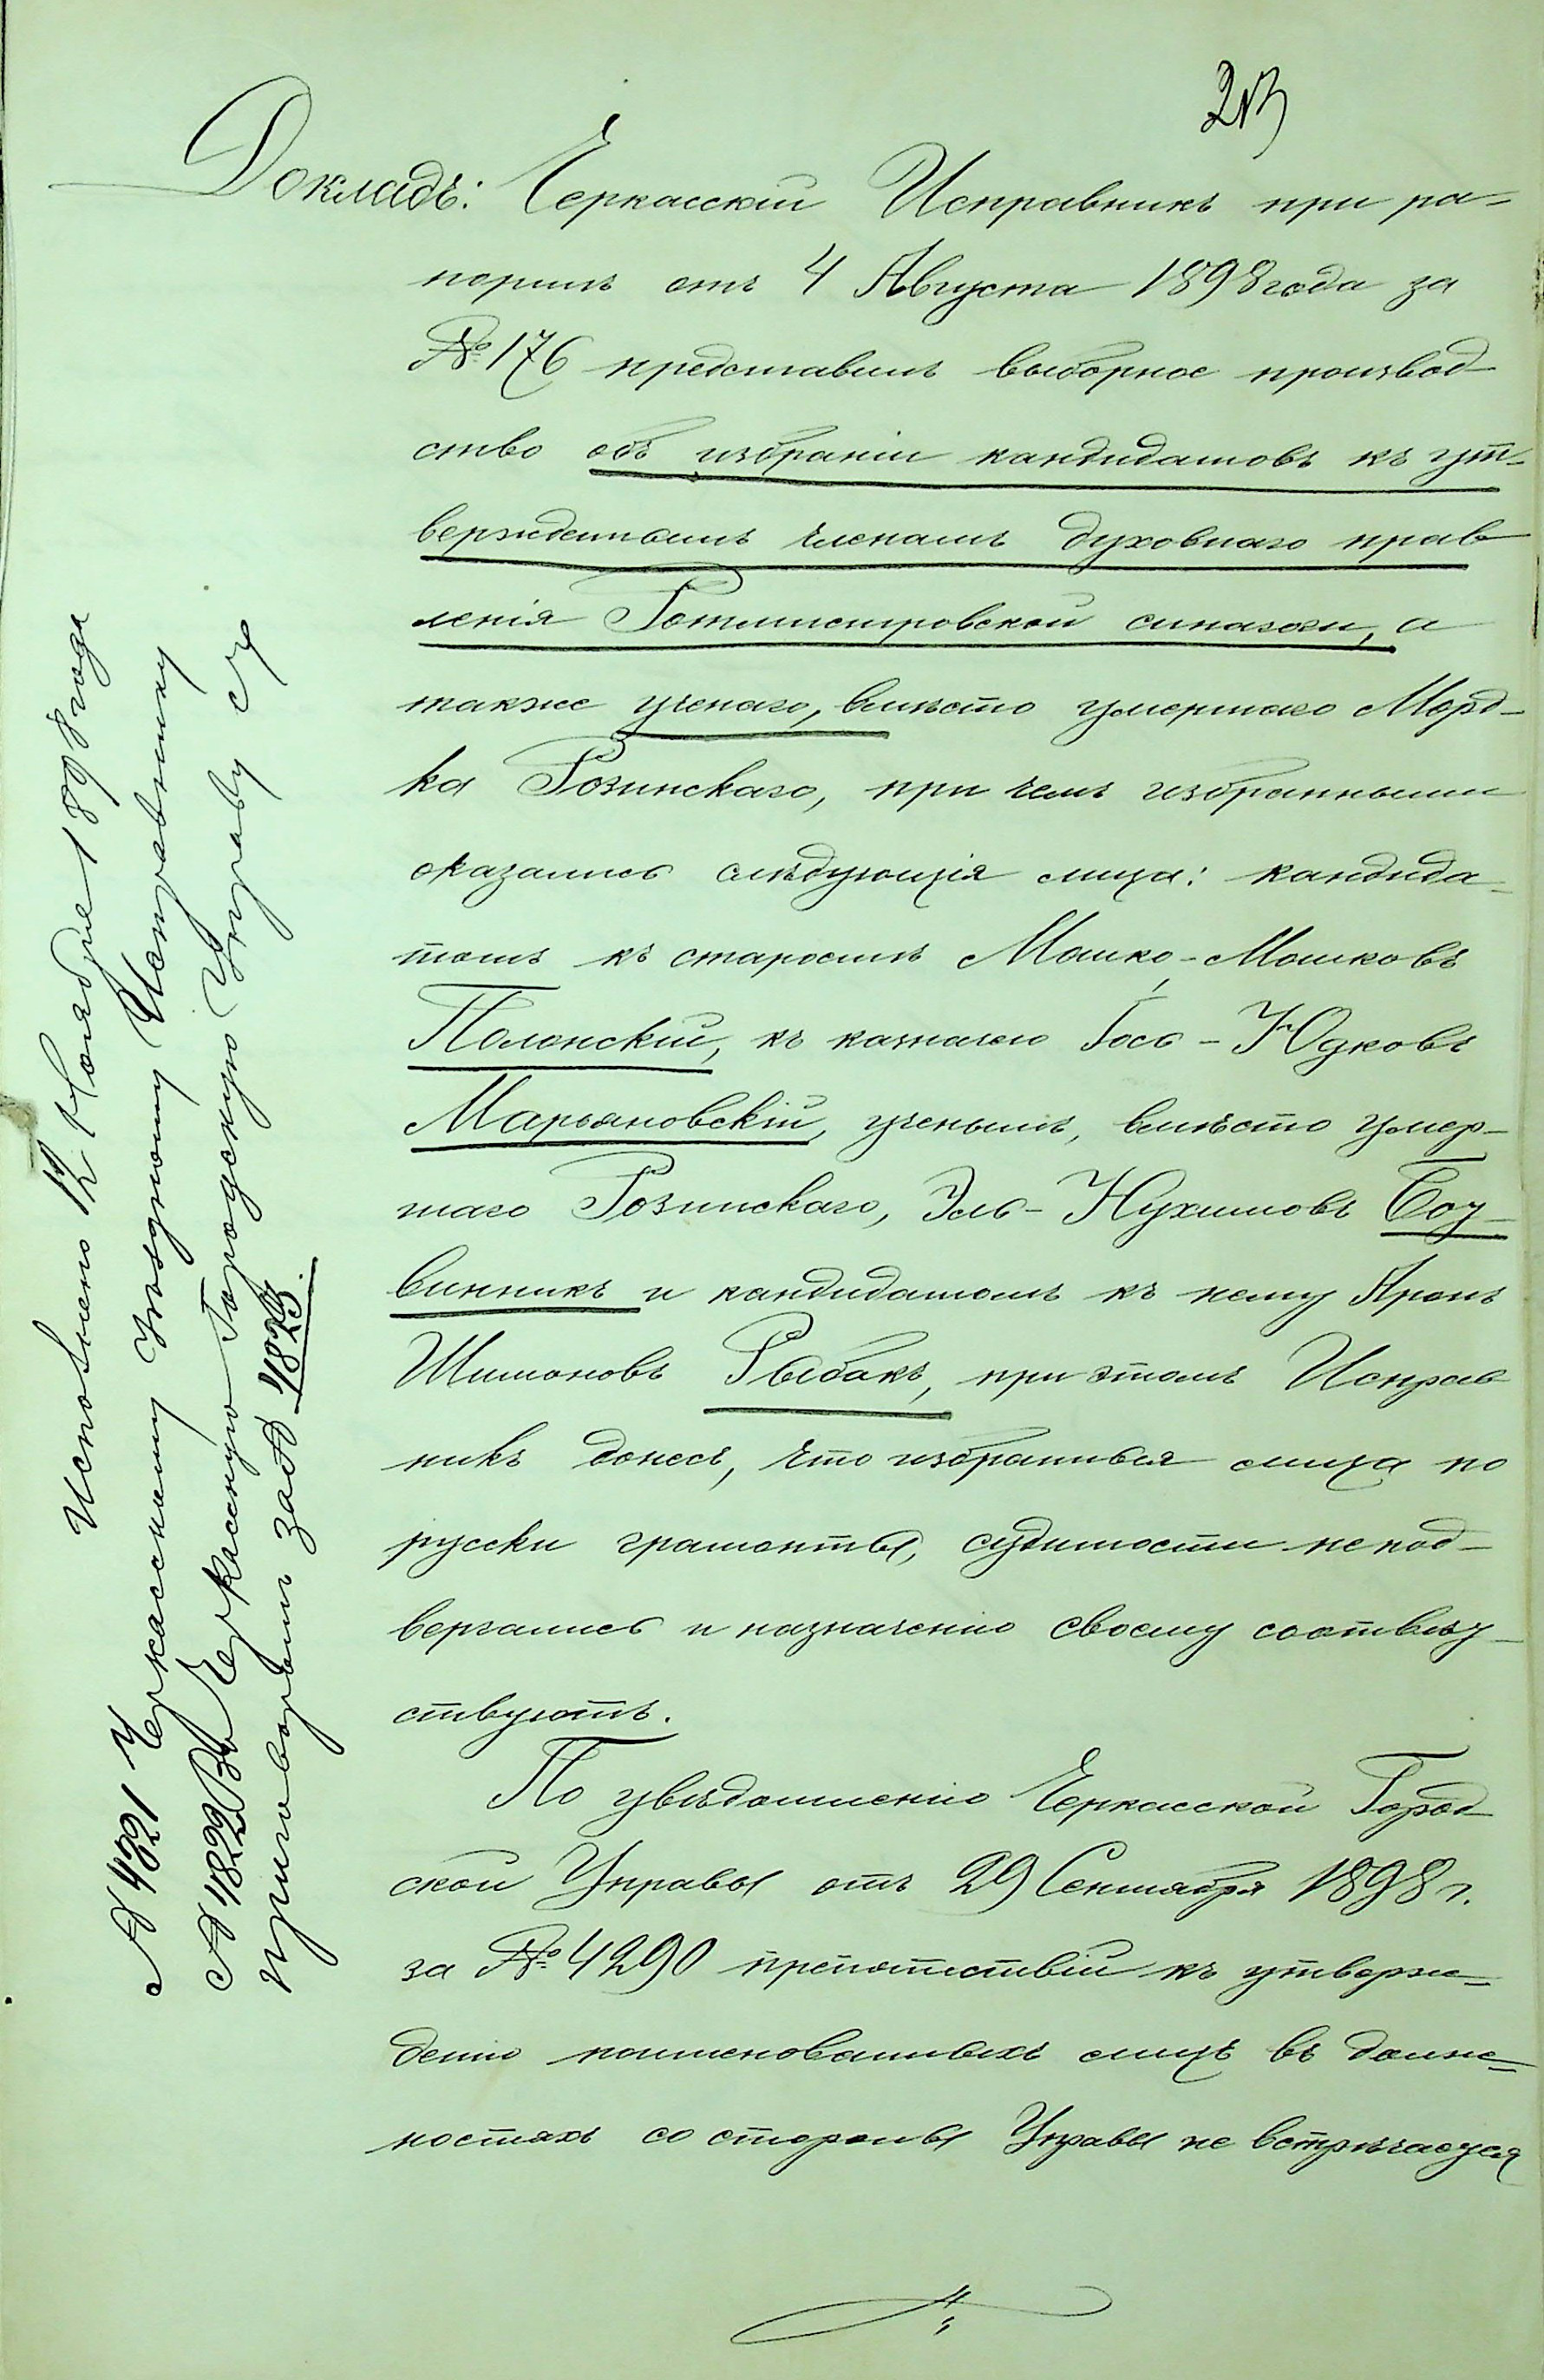 213
Докладъ: Черкасскій Исправникъ при ра-
портѣ отъ 4 Августа 1898 года за
№ 176 представилъ выборное производ-
ство объ избраніи кандидатовъ къ ут-
вержденнымъ членамъ духовнаго прав
ленія Ротмистровской синагоги, а
также ученаго, вмѣсто умершаго Морд-
ка Розинскаго, при чемъ избранными
оказались слѣдующія лица: кандида-
томъ къ старостѣ Мошко-Мошковъ
Полонскій, къ казначею Іось-Юдковъ
Марьяновскій, ученымъ, вмѣсто умер-
шаго Розинскаго, Эль-Нухимовъ Боу-
винникъ и кандидатомъ къ нему Аронъ
Шимоновъ Рыбакъ, при этомъ Исправ
никъ донесъ, что избранныя лица по
русски грамотны, судимости не под-
вергались и назначенію своему соотвѣт-
ствуютъ.
По увѣдомленію Черкасской Город-
ской Управы отъ 29 Сентября 1898 г.
за № 4290 препятствій къ утверж-
денію поименованныхъ лицъ въ долж-
ностяхъ со стороны Управы не встрѣчается
Исполнено 12 Ноября 1898 года
№ 4821 Черкасскому Уѣздному Исправнику
№ 4822 Въ Черкасскую Городскую Управу съ
приговоромъ за № 4823.